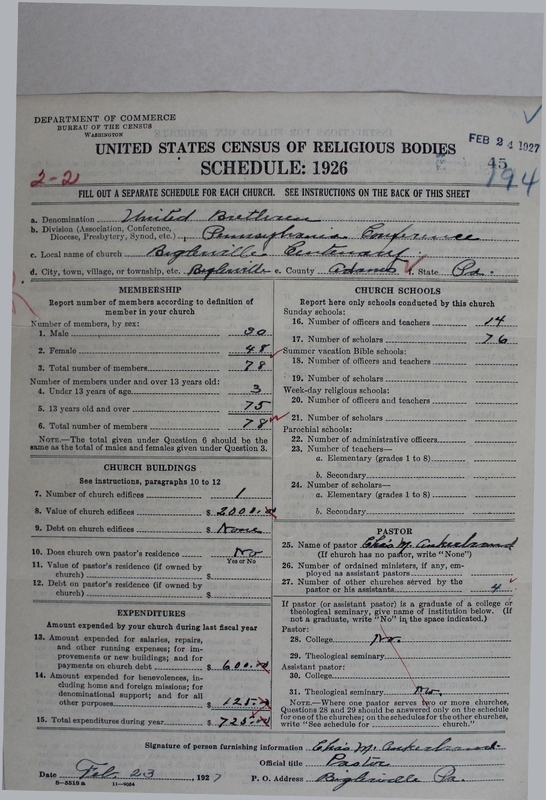 DEPARTMENT OF COMMERCE
BUREAU OF THE CENSUS
WASHINGTON
UNITED STATES CENSUS OF RELIGIOUS BODIES
FEB 24 1927
SCHEDULE: 1926
45
2-2
194
FILL OUT A SEPARATE SCHEDULE FOR EACH CHURCH. SEE INSTRUCTIONS ON THE BACK OF THIS SHEET
a. Denomination United Brethren
b. Division (Association, Conference, Diocese, Presbytery, Synod, etc.) Pennsylvania Conference
c. Local name of church Biglerville Centenary
d. City, town, village, or township, etc. Biglerville e. County Adams f. State Pa.
MEMBERSHIP
Report number of members according to definition of member in your church
Number of members, by sex:
1. Male 30
2. Female 48
3. Total number of members 78
Number of members under and over 13 years old:
4. Under 13 years of age 3
5. 13 years old and over 75
6. Total number of members 78
NOTE.—The total given under Question 6 should be the same as the total of males and females given under Question 3.
CHURCH BUILDINGS
See instructions, paragraphs 10 to 12
7. Number of church edifices 1
8. Value of church edifices $ 2000.00
9. Debt on church edifices $ None
10. Does church own pastor's residence No
Yes or No
11. Value of pastor's residence (if owned by church) $
12. Debt on pastor's residence (if owned by church) $
EXPENDITURES
Amount expended by your church during last fiscal year
13. Amount expended for salaries, repairs, and other running expenses; for improvements or new buildings; and for payments on church debt $ 600.00
14. Amount expended for benevolences, including home and foreign missions; for denominational support; and for all other purposes $ 125.00
15. Total expenditures during year $ 725.00
CHURCH SCHOOLS
Report here only schools conducted by this church
Sunday schools:
16. Number of officers and teachers 14
17. Number of scholars 76
Summer vacation Bible schools:
18. Number of officers and teachers
19. Number of scholars
Week-day religious schools:
20. Number of officers and teachers
21. Number of scholars
Parochial schools:
22. Number of administrative officers
23. Number of teachers—
a. Elementary (grades 1 to 8)
b. Secondary
24. Number of scholars—
a. Elementary (grades 1 to 8)
b. Secondary
PASTOR
25. Name of pastor Chas M. Ankerbrand
(If church has no pastor, write "None")
26. Number of ordained ministers, if any, employed as assistant pastors
27. Number of other churches served by the pastor or his assistants 4
If pastor (or assistant pastor) is a graduate of a college or theological seminary, give name of institution below. (If not a graduate, write "No" in the space indicated.)
Pastor:
28. College No.
29. Theological seminary
Assistant pastor:
30. College
31. Theological seminary No.
NOTE.—Where one pastor serves two or more churches, Questions 28 and 29 should be answered only on the schedule for one of the churches; on the schedules for the other churches, write "See schedule for church."
Signature of person furnishing information Chas M. Ankerbrand.
Official title Pastor
Date Feb. 23, 1927 P. O. Address Biglerville Pa.
8—5518 a 11—9034